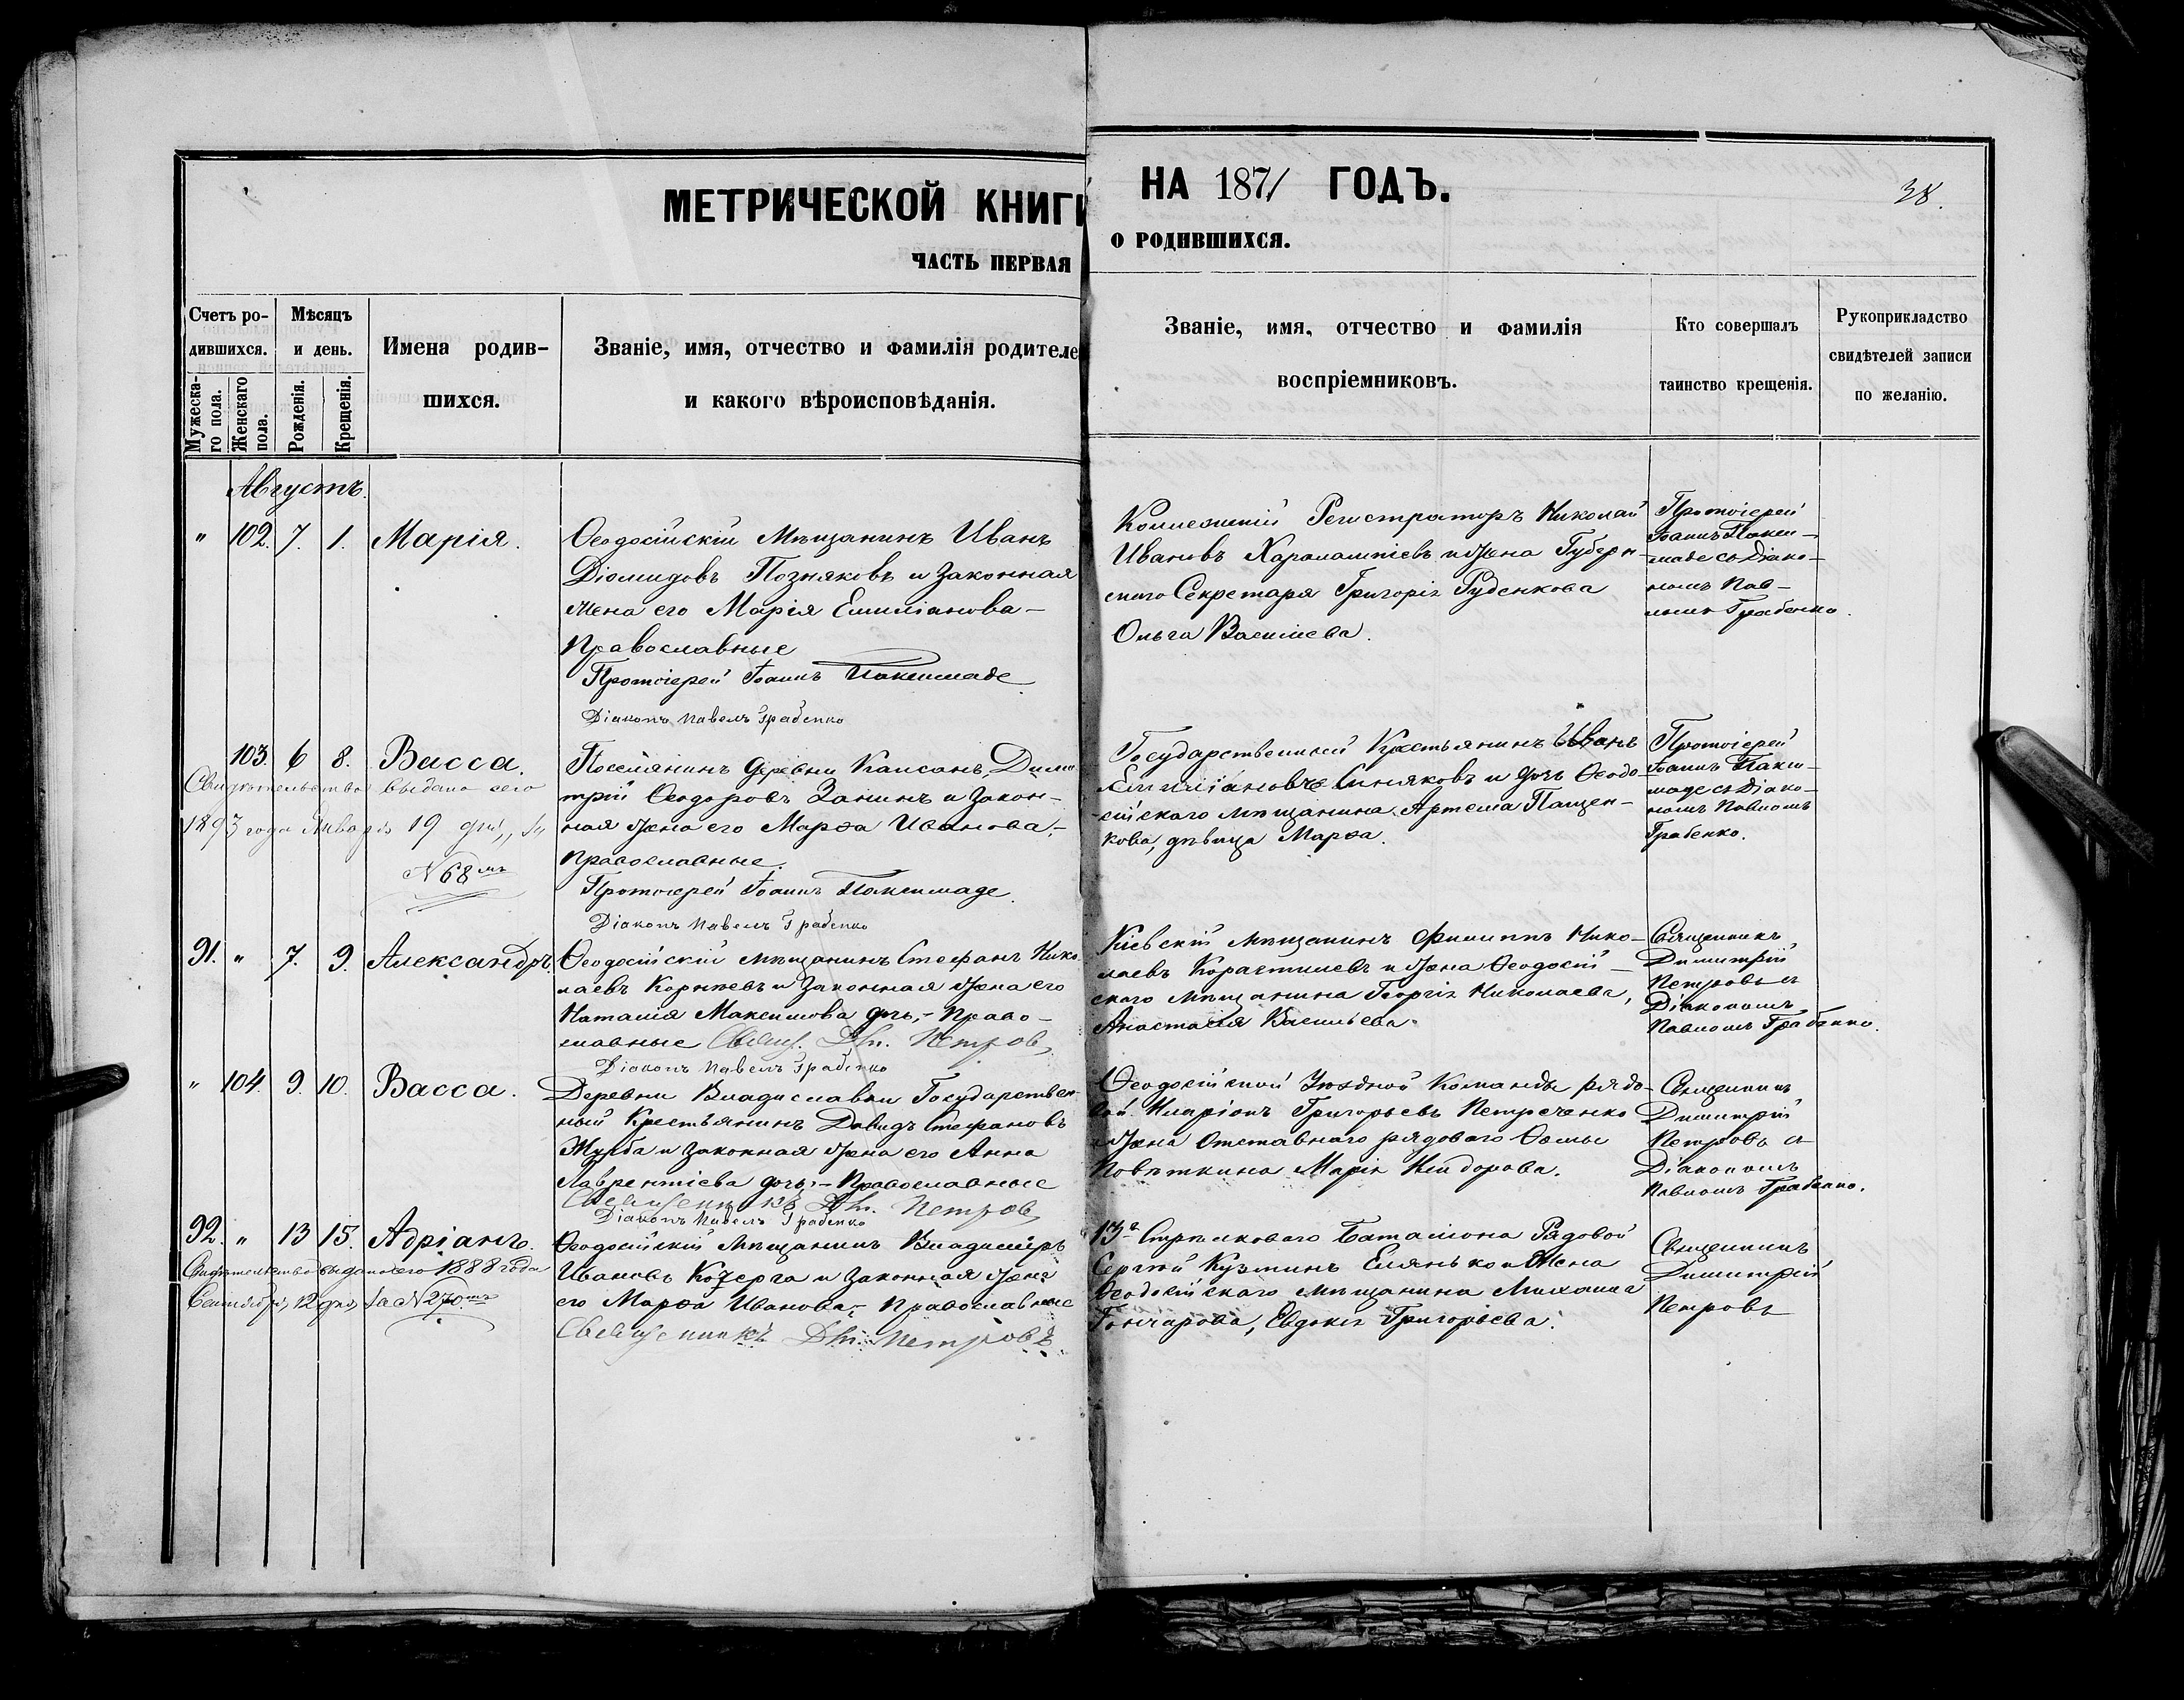 МЕТРИЧЕСКОЙ КНИГИ НА 1871 ГОДЪ.
38.
ЧАСТЬ ПЕРВАЯ О РОДИВШИХСЯ.
Счетъ ро-
дившихся.
Мужеска-
го пола.
Женскаго
пола.
Мѣсяцъ
и день.
Рожденія.
Крещенія.
Имена родив-
шихся.
Званіе, имя, отчество и фамилія родителе
и какого вѣроисповѣданія.
Званіе, имя, отчество и фамилія
воспріемниковъ.
Кто совершалъ
таинство крещенія.
Рукоприкладство
свидѣтелей записи
по желанію.
Августъ.
" 102. 7. 1. Марія.
Ѳеодосійскій Мѣщанинъ Иванъ
Діомидовъ Позняковъ и законная
жена его Марія Емиліанова –
Православные
Протоіерей Іоаннъ Паксимаде
Діаконъ Павелъ Грабенко
Коллежскій Регистраторъ Николай
Ивановъ Харалампіевъ и жена Губерн-
скаго Секретаря Григорія Руденкова
Ольга Васильева.
Протоіерей
Іоаннъ Пакси-
маде съ Діако-
номъ Пав-
ломъ Грабенко.
103. 6 8. Васса.
Свидѣтельство выдано сего
1893 года Января 19 дня, за
N 68мъ
Поселянинъ деревни Дими-
трій Ѳеодоровъ Занинъ и закон-
ная жена его Марѳа Иванова, –
Православные.
Протоіерей Іоаннъ Паксимаде.
Діаконъ Павелъ Грабенко
Государственный Крестьянинъ Иванъ
Емиліановъ Синяковъ и дочь Ѳеодо-
сійскаго мѣщанина Артема Пащен-
кова, дѣвица Марѳа.
Протоіерей
Іоаннъ Пакси-
маде съ Діако-
номъ Павломъ
Грабенко.
91. " 7. 9. Александръ.
Ѳеодосійскій мѣщанинъ Стефанъ Нико-
лаевъ Коржевъ и законная жена его
Наталія Максимова дочь, – Право-
славные Священ. Дм. Петровъ
Діаконъ Павелъ Грабенко
Кіевскій мѣщанинъ Филиппъ Нико-
лаевъ и жена Ѳеодосій-
скаго мѣщанина Георгія Николаева,
Анастасія Васильева.
Священникъ
Димитрій
Петровъ съ
Діакономъ
Павломъ Грабенко.
" 104. 9. 10. Васса.
Деревни Владиславки Государствен-
ный Крестьянинъ Давидъ Стефановъ
Жулба и законная жена его Анна
Лаврентіева дочь, – Православные
Священникъ Дм. Петровъ
Діаконъ Павелъ Грабенко
Ѳеодосійской Уѣздной Команды рядо-
вой Иларіонъ Григорьевъ Петреченко
и жена Отставнаго рядоваго Ѳомы
Повѣткина Марія Исидорова.
Священникъ
Димитрій
Петровъ съ
Діакономъ
Павломъ Грабенко.
92. " 13 15. Адріанъ.
Свидѣтельство выдано сего 1888 года
Сентября 12 дня за N 270мъ
Ѳеодосійскій Мѣщанинъ Владиміръ
Ивановъ Кочерга и законная жена
его Марѳа Иванова, – Православные
Священникъ Дм. Петровъ
13го Стрѣлковаго Баталіона Рядовой
Сергѣй Кузминъ Елянько и Жена
Ѳеодосійскаго мѣщанина Михаила
Гончарова, Евдокія Григорьева.
Священникъ
Димитрій
Петровъ